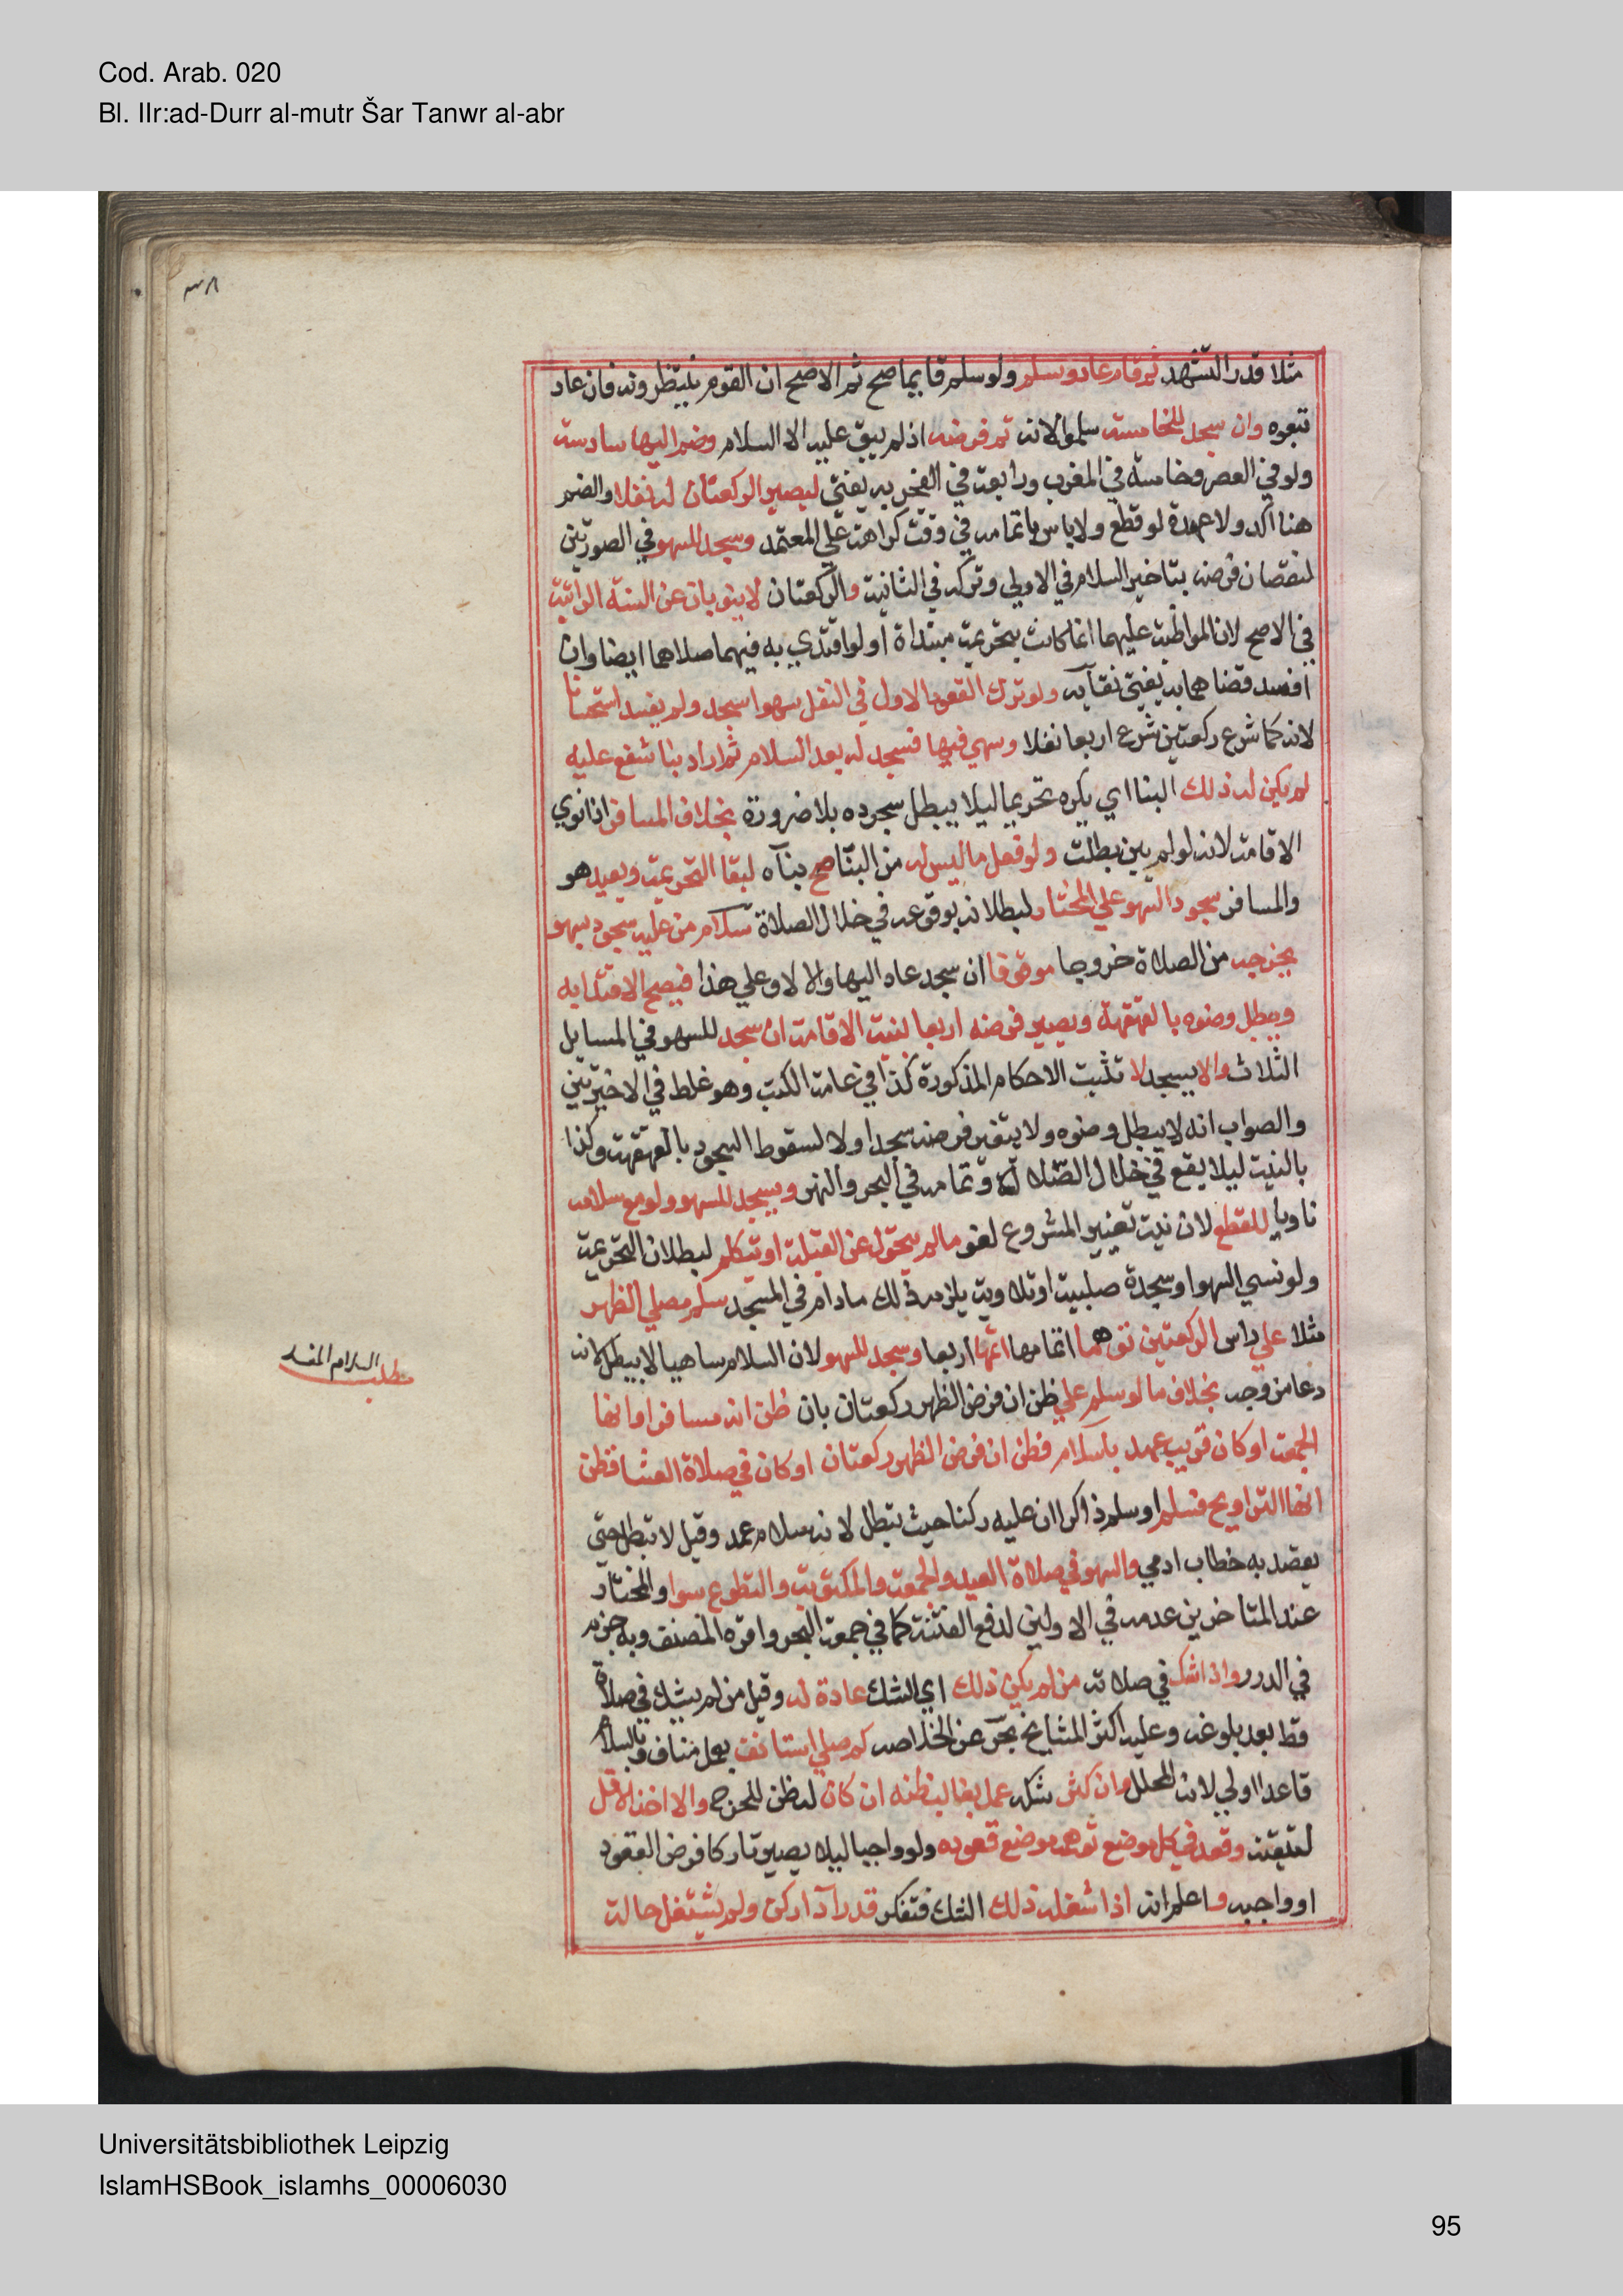 Cod. Arab. 020
Bl. IIr:ad-Durr al-mutr Šar Tanwr al-abr
مثلا قدر التشهد ثم قام عاد وسلم ولو سلم قايما صح ثم الاصح ان القوم ينتظرونه فان عاد
تبعوه وان سجد للخامسة سلموا لانه تم فرضه اذ لم يبق عليه الا السلام وضم اليها سادسة
ولو في العصر وخامسة في المغرب ورابعة في الفجر به يفتى ليصير الركعتان له نفلا والضم
هنا اكد ولا عهدة لو قطع ولا باس باتمامه في وقت كراهة على المعتمد وسجد للسهو في الصورتين
لنقصان فرضه بتاخير السلام في الاولي وتركه في الثانية والركعتان لا ينوبان عن السنة الراتبة
في الاصح لان المواظبة عليهما انما كانت بتحريمة مبتداة ولو اقتدي به فيهما صلاهما ايضا وان
افسد قضاهما به يفتى نقايه ولو ترك القعود الاول في النفل سهوا سجد ولم يفسد استحسانا
لانه كما شرع ركعتين شرع اربعا نفلا وسهي فيها فسجد له بعد السلام ثم اراد بنا شفع عليه
لم يكن له ذلك البنا اي يكره تحريما ليلا يبطل سجوده بلا ضرورة بخلاف المسافر اذا نوي
الاقامة لانه لو لم يبن بطلت ولو فعل ما ليس له من البنا صح بناه لبقا التحريمة ويعيد هو
والمسافر سجود السهو علي المختار لبطلانه بوقوعه في خلال الصلاة سلام من عليه سجود سهو
يخرجه من الصلاة خروجا موقوفا ان سجد عاد اليها والا لا وعلي هذا فيصح الاقتدا به
ويبطل وضوه بالقهقهة ويصير فرضه اربعا لنية الاقامة ان سجد للسهو في المسايل
الثلاث والا يسجد لا تثبت الاحكام المذكورة كذا في عامة الكتب وهو غلط في الاخيرتين
والصواب انه لا يبطل وضوه ولا يتغير فرضه سجد او لا لسقوط السجود بالقهقهة وكذا
بالنية ليلا يقع في خلال الصلاة وتمامه في البحر والنهر ويسجد للسهو ولو مع سلامه
ناويا للقطع لان نية تغيير المشروع لغو مالم يتحول عن القبلة او يتكلم لبطلان التحريمة
ولو نسي السهو او سجدة صلبية او تلاوية يلزمه ذلك مادام في المسجد سلم مصلي الظهر
مثلا علي راس الركعتين توهما اتمامها اتمها اربعا وسجد للسهو لان السلام ساهيا لا يبطل لانه
دعا من وجه بخلاف ما لو سلم علي ظن ان فرض الظهر ركعتان بان ظن انه مسافر او انها
الجمعة او كان قريب عهد باسلام فظن ان فرض الظهر ركعتان او كان في صلاة العشا فظن
انها التراويح فسلم او سلم ذاكرا ان عليه ركنا حيث تبطل لانه سلام عمد وقيل لا تبطل حتي
يقصد به خطاب ادمي والسهو في صلاة العيد والجمعة والمكتوبة والتطوع سوا والمختار
عند المتاخرين عدمه في الاولين لدفع الفتنة كما في جمعة البحر واقره المصنف وبه جزم
في الدرر واذا شك في صلاته من لم يكن ذلك اي الشك عادة له وقيل من لم يشك في صلاة
قط بعد بلوغه وعليه اكثر المشايخ بحر عن الخلاصه كم صلي استانف بعمل مناف وبالسلام
قاعدا اولي لانه المحلل وان كثر شكه عمل بغالب ظنه ان كان له ظن للحرج والا اخذ بالاقل
لتيقنه وقعد في كل موضع توهمه موضع قعوده ولو واجبا ليلا يصير تاركا فرض القعود
او واجبه واعلم انه اذا شغله ذلك الشك فتفكر قدر ادا ركن ولم يشتغل حالة
مطلب السلام المفسد
Universitätsbibliothek Leipzig
IslamHSBook_islamhs_00006030
95